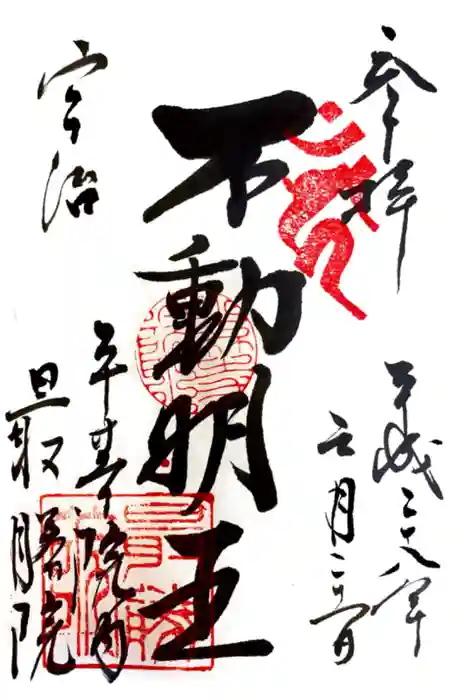 参拝
平成二十八年
月 日
不動明王
宇治
平等院内
最勝院